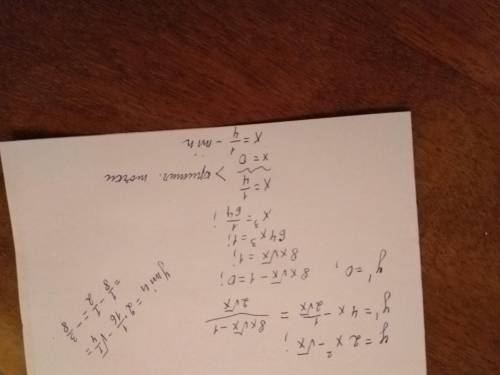 y = 2x² - √x;
y' = 4x - 1/(2√x) = (8x√x - 1)/(2√x)
y' = 0; 8x√x - 1 = 0;
8x√x = 1;
64x³ = 1;
x³ = 1/64;
x = 1/4
x = 0 > критич. точки
x = 1/4 - min
y min = 2 · 1/16 - √(1/4) =
= 1/8 - 1/2 = - 3/8